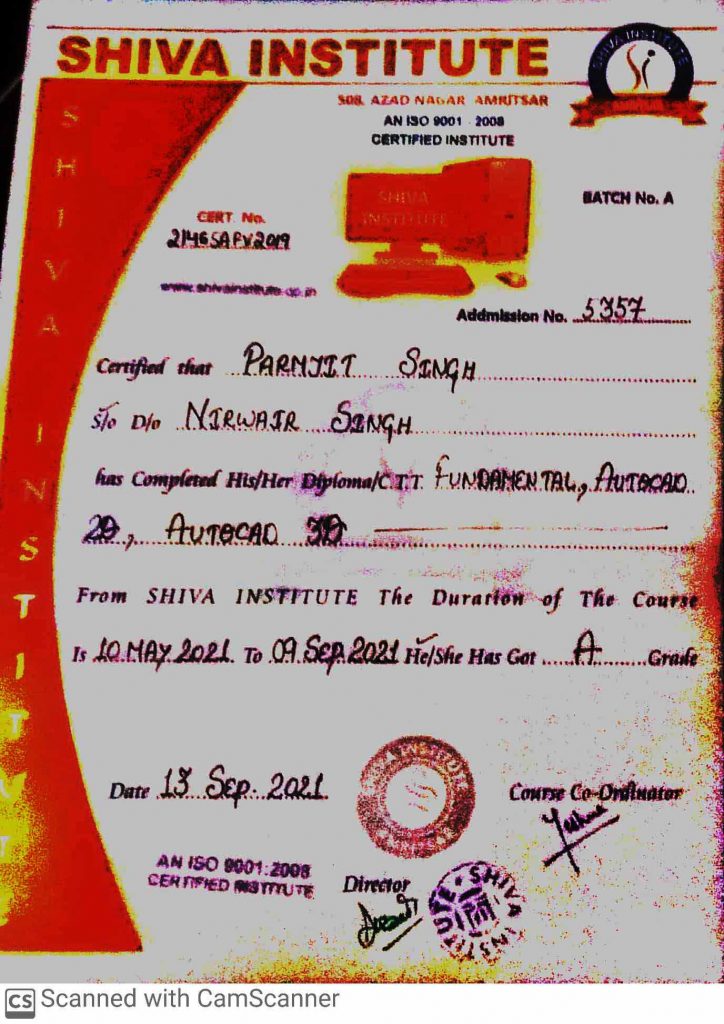 SHIVA INSTITUTE
SHIVA INSTITUTE
AMRITSAR
508, AZAD NAGAR AMRITSAR
AN ISO 9001 - 2008
CERTIFIED INSTITUTE
SHIVA INSTITUTE
SHIVA
INSTITUTE
BATCH No. A
CERT. No.
2146SAPV2019
Addmission No. 5357
Certified that PARMJIT SINGH
S/o D/o NIRWAIR SINGH
has Completed His/Her Diploma/C.T.T. FUNDAMENTAL, AUTOCAD
2D, AUTOCAD 3D
From SHIVA INSTITUTE The Duration of The Course
Is 10 MAY 2021 To 09 SEP. 2021 He/She Has Got A Grade
Date 13 SEP. 2021
Course Co-Ordinator
AN ISO 9001:2008
CERTIFIED INSTITUTE
Director
SHIVA INSTITUTE
CS Scanned with CamScanner